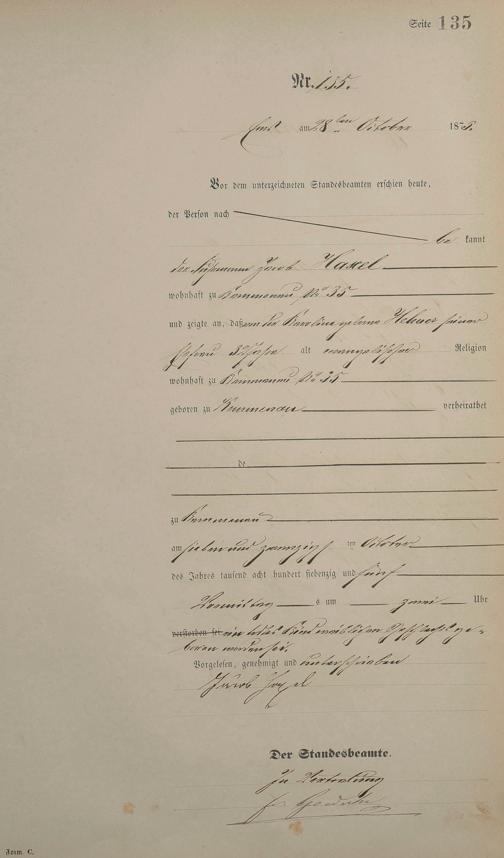 Seite 135
Nr. 135.
Ems am 28ten October 1875.
Vor dem unterzeichneten Standesbeamten erschien heute,
der Person nach
be kannt
der Jacob Hassel
wohnhaft zu Kemmenau No 35
und zeigte an, daß von der Karoline geborne Hebner seiner
Ehefrau alt evangelischer Religion
wohnhaft zu Kemmenau No 35
geboren zu Kemmenau verheirathet
de
zu Kemmenau
am sieben und zwanzigsten October
des Jahres tausend acht hundert siebenzig und fünf
Vormittag s um zwei Uhr
verstorben sei ein todtes Kind weiblichen Geschlechts ge-
boren worden sei.
Vorgelesen, genehmigt und unterschrieben
Jacob Hassel
Der Standesbeamte.
In Vertretung
Form. C.